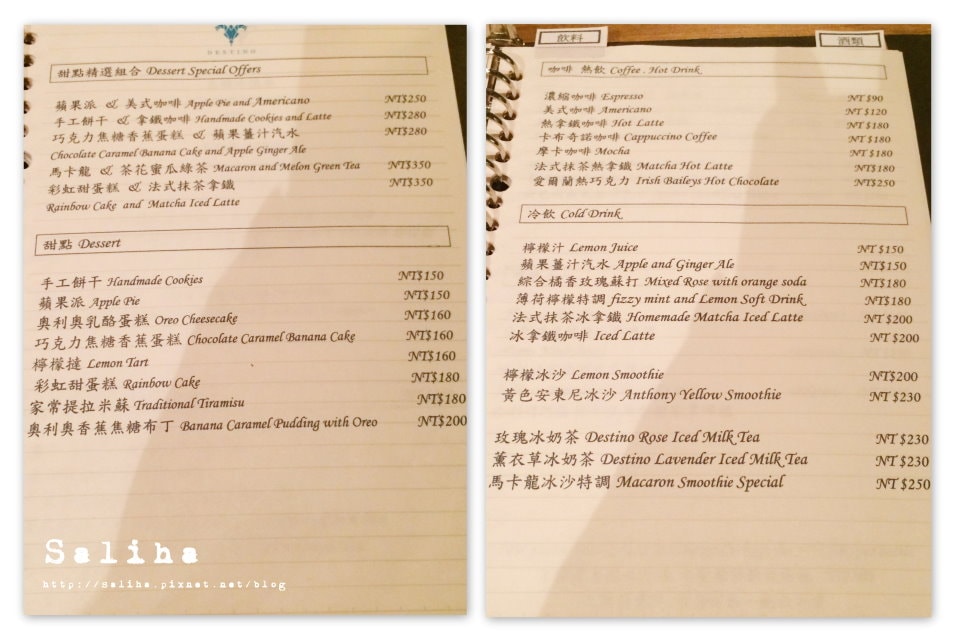 DESTINO
甜點精選組合 Dessert Special Offers
蘋果派 & 美式咖啡 Apple Pie and Americano NT$250
手工餅干 & 拿鐵咖啡 Handmade Cookies and Latte NT$280
巧克力焦糖香蕉蛋糕 & 蘋果薑汁汽水 NT$280
Chocolate Caramel Banana Cake and Apple Ginger Ale
馬卡龍 & 茶花蜜瓜綠茶 Macaron and Melon Green Tea NT$350
彩虹甜蛋糕 & 法式抹茶拿鐵 NT$350
Rainbow Cake and Matcha Iced Latte
甜點 Dessert
手工餅干 Handmade Cookies NT$150
蘋果派 Apple Pie NT$150
奧利奧乳酪蛋糕 Oreo Cheesecake NT$160
巧克力焦糖香蕉蛋糕 Chocolate Caramel Banana Cake NT$160
檸檬撻 Lemon Tart NT$160
彩虹甜蛋糕 Rainbow Cake NT$180
家常提拉米蘇 Traditional Tiramisu NT$180
奧利奧香蕉焦糖布丁 Banana Caramel Pudding with Oreo NT$200
Saliha
http://saliha.pixnet.net/blog
飲料 酒類
咖啡 熱飲 Coffee . Hot Drink
濃縮咖啡 Espresso NT $90
美式咖啡 Americano NT $120
熱拿鐵咖啡 Hot Latte NT $180
卡布奇諾咖啡 Cappuccino Coffee NT $180
摩卡咖啡 Mocha NT $180
法式抹茶熱拿鐵 Matcha Hot Latte NT $180
愛爾蘭熱巧克力 Irish Baileys Hot Chocolate NT $250
冷飲 Cold Drink
檸檬汁 Lemon Juice NT $150
蘋果薑汁汽水 Apple and Ginger Ale NT $150
綜合橘香玫瑰蘇打 Mixed Rose with orange soda NT$180
薄荷檸檬特調 fizzy mint and Lemon Soft Drink NT$180
法式抹茶冰拿鐵 Homemade Matcha Iced Latte NT $200
冰拿鐵咖啡 Iced Latte NT $200
檸檬冰沙 Lemon Smoothie NT$200
黃色安東尼冰沙 Anthony Yellow Smoothie NT $230
玫瑰冰奶茶 Destino Rose Iced Milk Tea NT $230
薰衣草冰奶茶 Destino Lavender Iced Milk Tea NT $230
馬卡龍冰沙特調 Macaron Smoothie Special NT $250